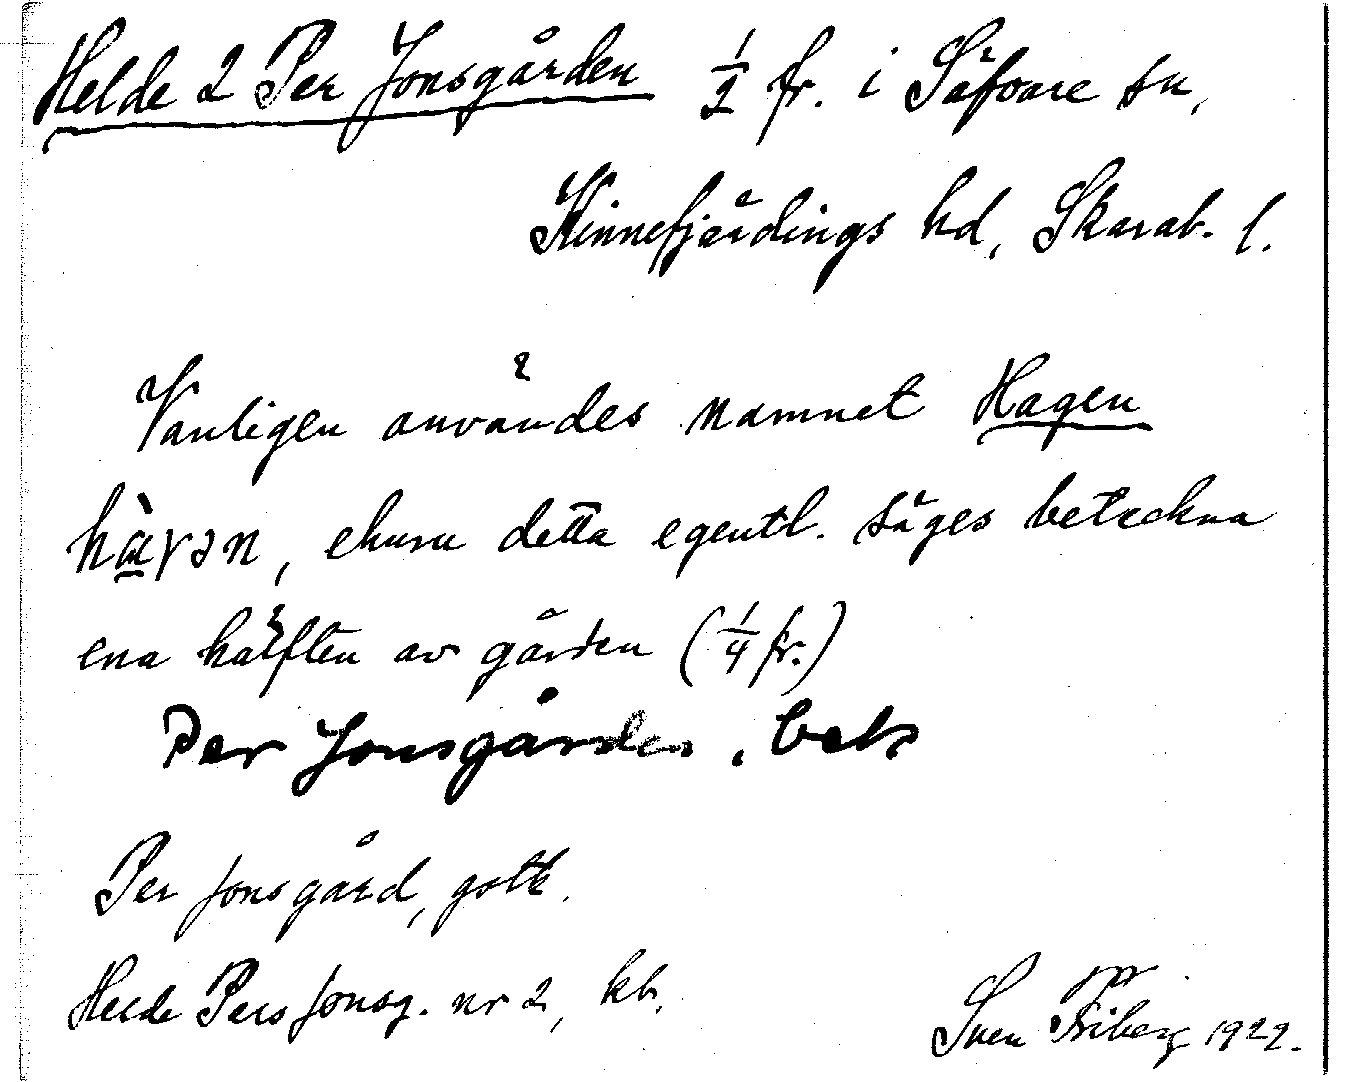 Helde 2 Per Jonsgården 1/2 fr. i Säfvare sn,
Kinnefjärdings hd, Skarab. l.
Vanligen användes namnet Hagen
hàɣən, ehuru detta egentl. säges beteckna
ena hälften av gården (1/4 fr.)
Per Jonsgården, bets
Per Jonsgård, gstk.
Helde Pers Jonsg. nr 2, kb.
Sven Friberg 1922.